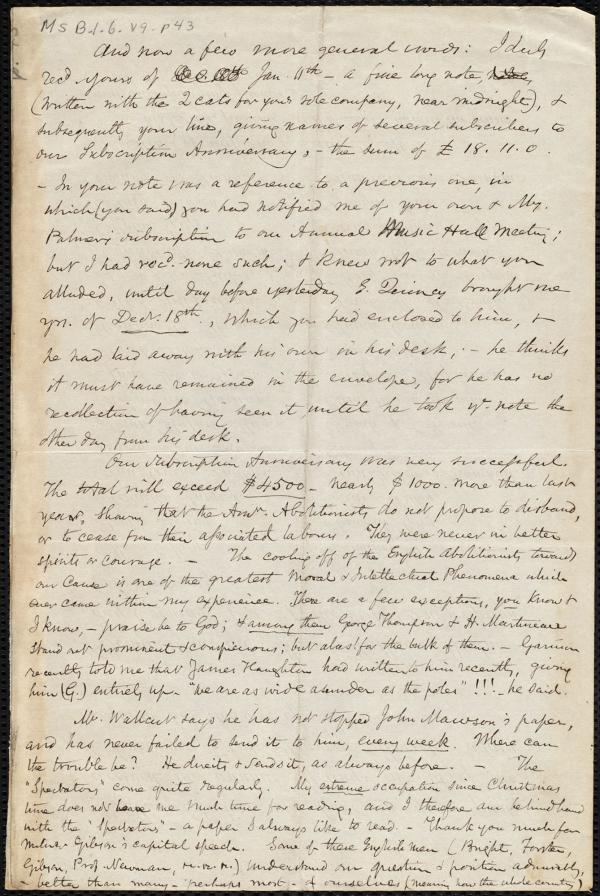 Ms B.1.6. V9. p43
And now a few more general words: I duly
recd yours of Jan. 11th - a fine long note,
(written with the 2 cats for your sole company, near midnight), &
subsequently your line, giving names of several subscribers to
our Subscription Anniversary, - the sum of £ 18. 11. 0.
- In your note was a reference to a previous one, in
which (you said) you had notified me of your own & My.
Palmer's subscription to our Annual Music Hall Meeting;
but I had recd. none such; & knew not to what you
alluded, until day before yesterday E. Quincy brought me
yrs. of Decr. 18th., which you had enclosed to him, &
he had laid away with his own in his desk; - he thinks
it must have remained in the envelope, for he has no
recollection of having seen it, until he took yr. note the
other day from his desk.
Our Subscription Anniversary was very successful.
The total will exceed $4500 - nearly $1000. more than last
year, showing that the Amn. Abolitionists do not propose to disband,
or to cease from their associated labours. They were never in better
spirits or courage. - The cooling off of the English Abolitionists towards
our Cause is one of the greatest Moral & Intellectual Phenomena which
ever came within my experience. There are a few exceptions, you know &
I know, - praise be to God; & among them George Thompson & H. Martineau
stand out prominent & conspicuous; but alas! for the bulk of them. - Garrison
recently told me that James Haughton had written to him recently, giving
him (G.) entirely up. "We are as wide asunder as the poles" !!! - he said.
Mr. Wallcut says he has not stopped John Mawson's paper,
and has never failed to send it to him, every week. Where can
the trouble be? He directs & sends it, as always before. - The
"Spectators" come quite regularly. My extreme occupation since Christmas
time does not leave me much time for reading, and I therefore am behindhand
with the "Spectators" - a paper I always like to read. - Thank you much for
Milner Gibson's capital speech. Some of these Englishmen (Bright, Forster,
Gibson, Prof. Newman, &c. &c.) understand our question & position admirably,
- better than many - perhaps most - of ourselves (meaning now the whole country)